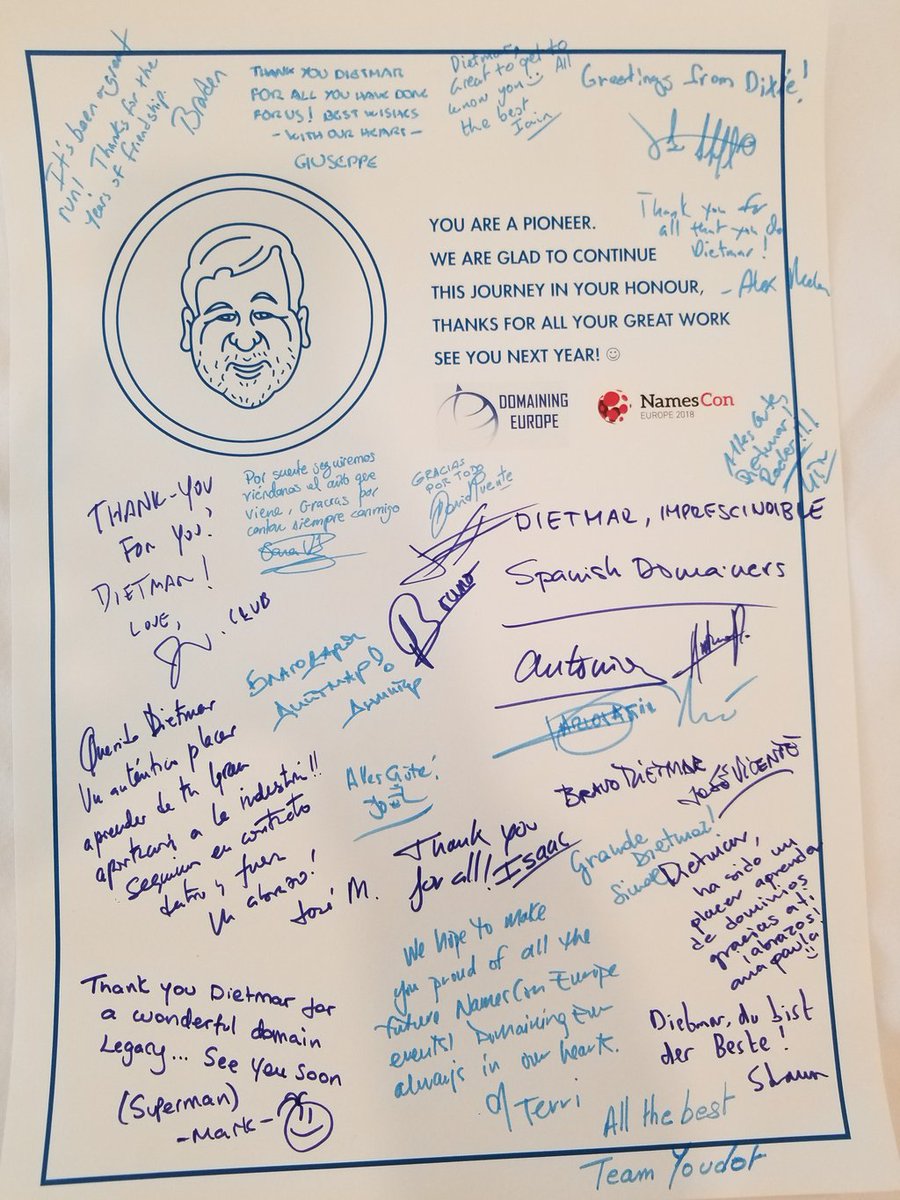 It's been a great
run! Thanks for the
years of friendship.
Braden
THANK YOU DIETMAR
FOR ALL YOU HAVE DONE
FOR US! BEST WISHES
- WITH OUR HEART -
GIUSEPPE
Dietmar,
Great to get to
know you! All
the best
Iain
Greetings from Dixie!
Thank you for
all that you do
Dietmar!
- Alex
YOU ARE A PIONEER.
WE ARE GLAD TO CONTINUE
THIS JOURNEY IN YOUR HONOUR,
THANKS FOR ALL YOUR GREAT WORK
SEE YOU NEXT YEAR! ☺
DOMAINING
EUROPE
NamesCon
EUROPE 2018
Alles Gute
Dietmar!
THANK-YOU
FOR YOU!
DIETMAR!
LOVE,
.CLUB
Por suerte seguiremos
viéndonos el año que
viene, Gracias por
contar siempre conmigo
GRACIAS
POR TODO
David Fuente
DIETMAR, IMPRESCINDIBLE
Spanish Domainers
Bruno
Antonio
Благодаря
Дитмар!
Димитър
Querido Dietmar
Un auténtico placer
aprender de tu gran
a la industria!!
Seguimos en contacto
dentro y fuera
Un abrazo!
José M.
Alles Gute!
BRAVO DIETMAR
JOSÉ VICENTE
Thank you
for all! Isaac
Grande
Dietmar!
Dietmar,
ha sido un
placer aprender
de dominios
gracias a ti
¡abrazos!
ana paula
We hope to make
you proud of all the
future NamesCon Europe
events! Domaining Eur
always in our hearts.
Terri
Thank you Dietmar for
a wonderful domain
Legacy... See you soon
(Superman)
- Mark -
Dietmar, du bist
der Beste!
Shaun
All the best
Team Youdot